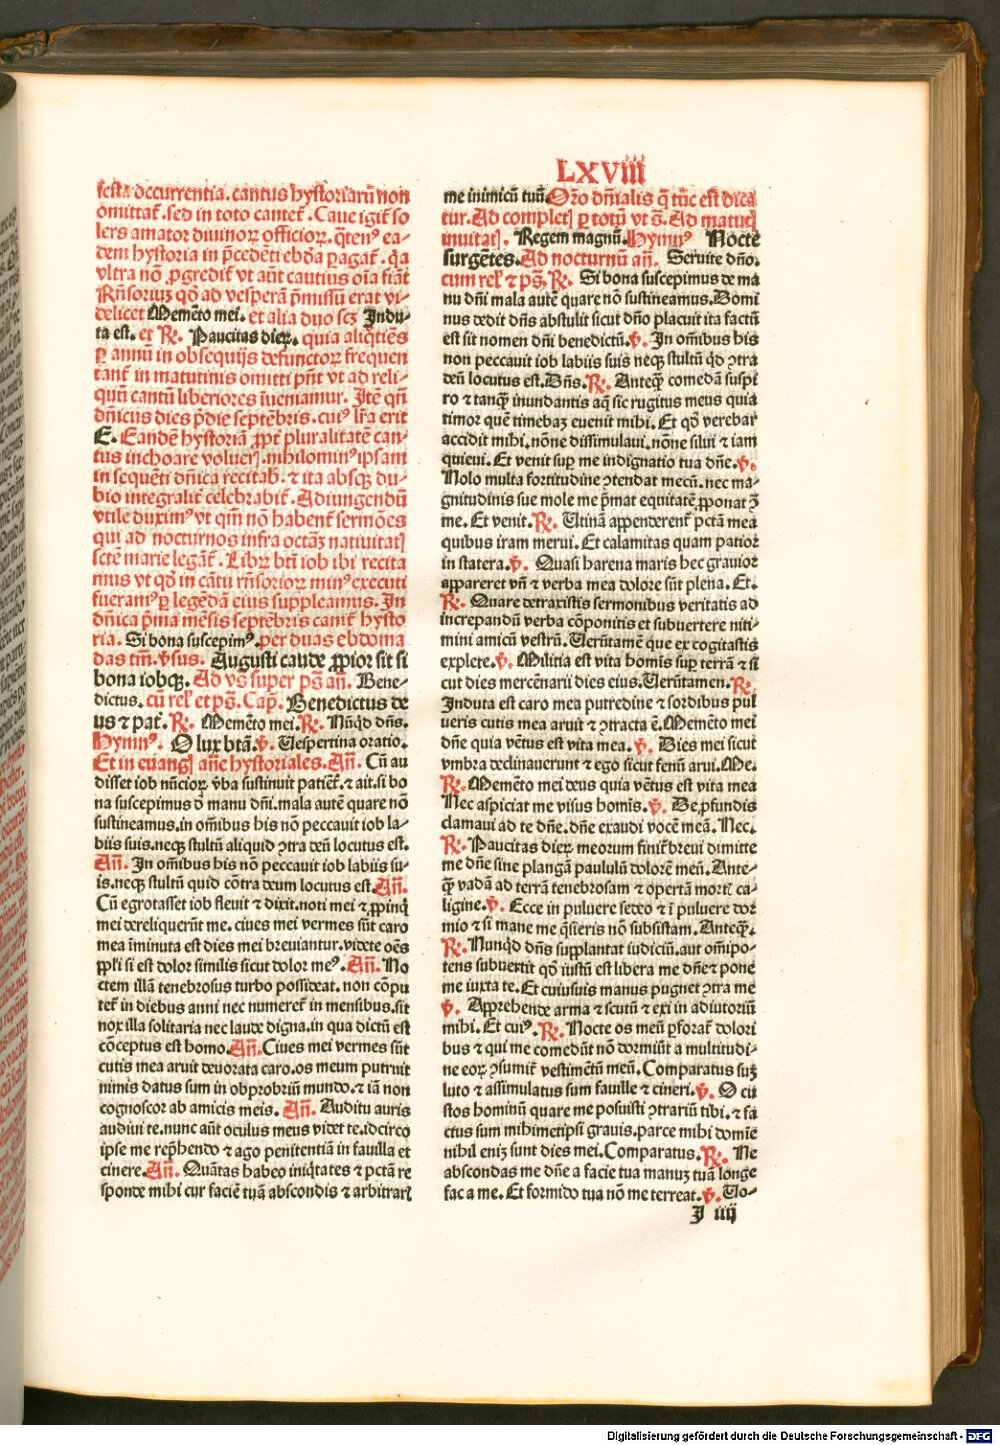 LXVIII
festa occurrentia. cantus hystoriarū non
omittat᷑. sed in toto cantet᷑. Caue igit᷑ so
lers amator diuinoꝝ officioꝝ. q̄tenꝰ ea-
dem hystoria in p̄cedēti ebdōa ꝑagat᷑. q̄a
vltra nō ꝓgredit᷑ vt aūt cautius oīa fiāt
Rn̄soriuꝫ qd̓ ad vesperā p̄missū erat vi-
delicet Memēto mei. et alia duo scꝫ Indu-
ta est. et ℟. Paucitas dieꝝ. quia aliqtiēs
ꝑ annū in obsequijs defunctoꝝ frequen
tant᷑ in matutinis omitti pn̄t vt ad reli-
quū cantū liberiores īueniamur. Itē qn̄
dn̄icus dies p̄die septēbris. cuiꝰ lr̄a erit
E. Eandē hystoriā ꝓpt᷑ pluralitatē can-
tus inchoare volueri. nihilominꝰ ipsam
in sequēti dn̄ica recitab. ⁊ ita absqꝫ du-
bio integralit᷑ celebrabit᷑. Adiungendū
vtile duximꝰ vt qm̄ nō habent᷑ sermōes
qui ad nocturnos infra octauꝫ natiuitatꝭ
scte᷑ marie legant᷑. Libꝝ bt̄i iob ibi recita
mus vt qd̓ in cātu rn̄sorioꝝ minꝰ executi
fueramꝰ ꝑ legēdā eius suppleamus. In
dn̄ica p̄ma mēsis septēbris canit᷑ hysto
ria. Si bona suscepimꝰ. per duas ebdoma
das tm̄. v̓sus. Augusti caude ꝓpior sit si
bona iobqꝫ. Ad vs̄ super ps̄ an̄. Bene-
dictus. cū rel̓ et ps̄. Cap̄. Benedictus de
us ⁊ pat᷑. ℟. Memēto mei. ℟. Nūqd̓ dn̄s.
Hymnꝰ. O lux btā. ℣. Vespertina oratio.
Et in euangꝭ an̄e hystoriales. An̄. Cū au
disset iob nūcioꝝ v̓ba sustinuit patiēt᷑. ⁊ ait. si bo
na suscepimus d̓ manu dn̄i. mala autē quare nō
sustineamus. in om̄ibus his nō peccauit iob la-
biis suis. neqꝫ stultū aliquid ꝯtra deū locutus est.
An̄. In om̄ibus his nō peccauit iob labiis su-
is. neqꝫ stultū quid cōtra deum locutus est. An̄.
Cū egrotasset iob fleuit ⁊ dixit. noti mei ⁊ ꝓpinqͥ
mei dereliquerūt me. ciues mei vermes sūt caro
mea īminuta est dies mei breuiantur. videte oēs
ppl̓i si est dolor similis sicut dolor meꝰ. An̄. No
ctem illā tenebrosus turbo possideat. non cōpu
tet᷑ in diebus anni nec numeret᷑ in mensibus. sit
nox illa solitaria nec laude digna. in qua dictū est
cōceptus est homo. An̄. Ciues mei vermes sūt
cutis mea aruit deuorata caro. os meum putruit
nimis datus sum in obprobriū mundo. ⁊ iā non
cognoscor ab amicis meis. An̄. Auditu auris
audiui te. nunc aūt oculus meus videt te. idcirco
ipse me rep̄hendo ⁊ ago penitentiā in fauilla et
cinere. An̄. Quātas habeo iniqͥtates ⁊ pctā re
sponde mihi cur faciē tuā abscondis ⁊ arbitrarꝭ
me inimicū tuū. Orō dn̄ialis q̄ tūc est dica
tur. Ad completꝭ ꝑ totū vt s̄. Ad matuꝭ
inuitaꝭ. Regem magnū. Hymnꝰ Nocte
surgētes. Ad nocturnū an̄. Seruite dn̄o.
cum rel̓ ⁊ ps̄. ℟. Si bona suscepimus de ma
nu dn̄i mala autē quare nō sustineamus. Domi
nus dedit dn̄s abstulit sicut dn̄o placuit ita factū
est sit nomen dn̄i benedictū. ℣. In om̄ibus his
non peccauit iob labiis suis neqꝫ stultū qd̓ ꝯtra
deū locutus est. Dn̄s. ℟. Anteqꝫ comedā suspi
ro ⁊ tanqꝫ inundantis aq̄ sic rugitus meus quia
timor quē timebaꝫ euenit mihi. Et qd̓ verebar
accidit mihi. nōne dissimulaui. nōne silui ⁊ iam
quieui. Et venit suꝑ me indignatio tua dn̄e. ℣.
Nolo multa fortitudine ꝯtendat mecū. nec ma-
gnitudinis sue mole me p̄mat equitatē ꝓponat ꝯ̄
me. Et venit. ℟. Utinā appenderent᷑ pctā mea
quibus iram merui. Et calamitas quam patior
in statera. ℣. Quasi harena maris hec grauior
appareret vn̄ ⁊ verba mea dolore sūt plena. Et.
℟. Quare detraxistis sermonibus veritatis ad
increpandū verba cōponitis et subuertere niti-
mini amicū vestrū. Uerūtamē que ex cogitastis
explete. ℣. Militia est vita homīs suꝑ terrā ⁊ si
cut dies mercēnarii dies eius. Uerūtamen. ℟.
Induta est caro mea putredine ⁊ sordibus pul
ueris cutis mea aruit ⁊ ꝯtracta ē. Memēto mei
dn̄e quia vētus est vita mea. ℣. Dies mei sicut
vmbra declinauerunt ⁊ ego sicut fenū arui. Me.
℟. Memēto mei deus quia vētus est vita mea
Nec aspiciat me visus homīs. ℣. De ꝓfundis
clamaui ad te dn̄e. dn̄e exaudi vocē meā. Nec.
℟. Paucitas dieꝝ meorum finit᷑ breui dimitte
me dn̄e sine plangā paululū dolorē meū. Ante-
qꝫ vadā ad terrā tenebrosam ⁊ opertā mortꝭ ca-
ligine. ℣. Ecce in puluere sedeo ⁊ ī puluere dor
mio ⁊ si mane me q̄sieris nō subsistam. Anteqꝫ.
℟. Nunqd̓ dn̄s supplantat iudiciū. aut om̄ipo-
tens subuertit qd̓ iustū est libera me dn̄e ⁊ pone
me iuxta te. Et cuiusuis manus pugnet ꝯtra me
℣. Apprehende arma ⁊ scutū ⁊ exi in adiutoriū
mihi. Et cuiꝰ. ℟. Nocte os meū ꝑforat᷑ dolori
bus ⁊ qui me comedūt nō dormiūt a multitudi-
ne eoꝝ ꝯsumit᷑ vestimētū meū. Comparatus suꝫ
luto ⁊ assimulatus sum fauille ⁊ cineri. ℣. O cu
stos hominū quare me posuisti ꝯtrariū tibi. ⁊ fa
ctus sum mihimetipsi grauis. parce mihi domīe
nihil eniꝫ sunt dies mei. Comparatus. ℟. Ne
abscondas me dn̄e a facie tua manuꝫ tuā longe
fac a me. Et formido tua nō me terreat. ℣. Uo-
I iiij
Digitalisierung gefördert durch die Deutsche Forschungsgemeinschaft - DFG